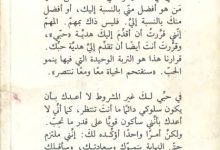 مَن هو أفضل مني بالنسبة إليك، أو أفضل
منك بالنسبة إليّ. فليس ذاك بمهم. المهمّ
إنني قرّرتُ أن أقدّم إليكَ هديّة «حبّي»،
وقرّرتَ أنتَ أيضًا أن تقدّم إليّ هديّة حبّك.
قرارنا هذا هو التربة الوحيدة التي فيها ينمو
الحبّ. «سنقتحم الحياة معًا ومعًا ننتصر».
في حبّي لكَ غير المشروط لا أعدك بأن
يكون سلوكي دائمًا ما أنتَ تنتظر، كما أنّي لا
أعدك بأنني سأكون قويًا على قدر ما تحبّ.
ولكنّ أمرًا واحدًا أؤكّده لكَ: إنني ملتزم
حتى النهاية بنموّك وسعادتك، وسأقبلك